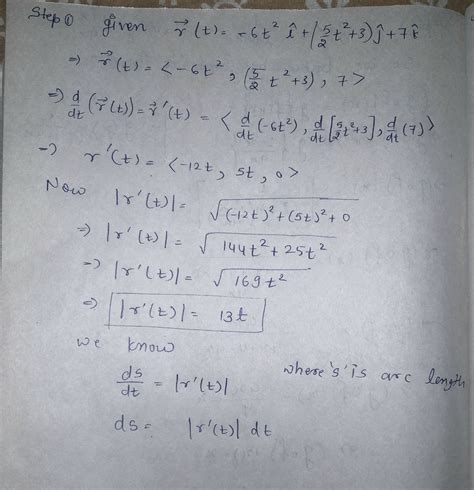 Step ① given r⃗(t) = -6t² î + (5/2 t²+3) ĵ + 7 k̂
⇒ r⃗(t) = < -6t², (5/2 t²+3), 7 >
⇒ d/dt (r⃗(t)) = r⃗'(t) = < d/dt (-6t²), d/dt [5/2 t²+3], d/dt (7) >
⇒ r'(t) = < -12t, 5t, 0 >
Now |r'(t)| = √(-12t)² + (5t)² + 0
⇒ |r'(t)| = √144t² + 25t²
⇒ |r'(t)| = √169t²
⇒ |r'(t)| = 13t
we know
ds/dt = |r'(t)| where 's' is arc length
ds = |r'(t)| dt